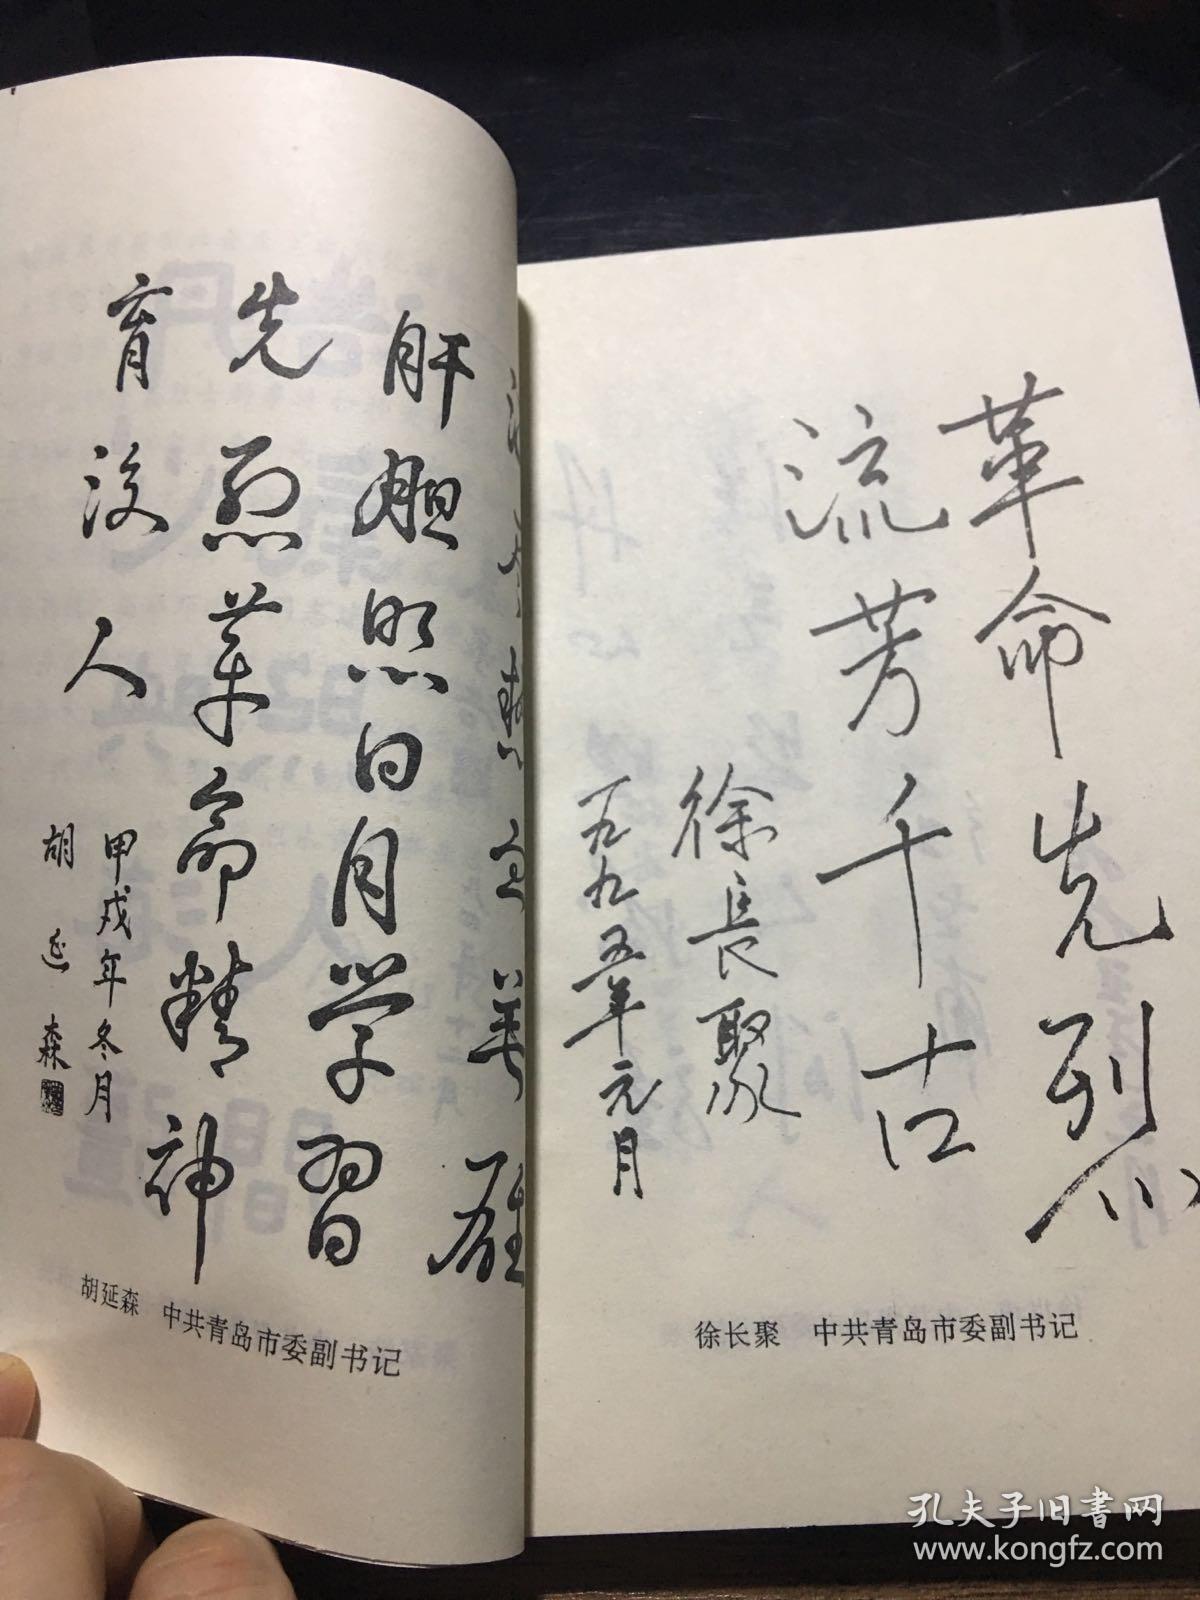 肝胆照日月学習
先烈革命精神
育后人
甲戌年冬月
胡延森
胡延森 中共青岛市委副书记
革命先烈
流芳千古
徐長聚
一九九五年元月
徐长聚 中共青岛市委副书记
孔夫子旧书网
www.kongfz.com